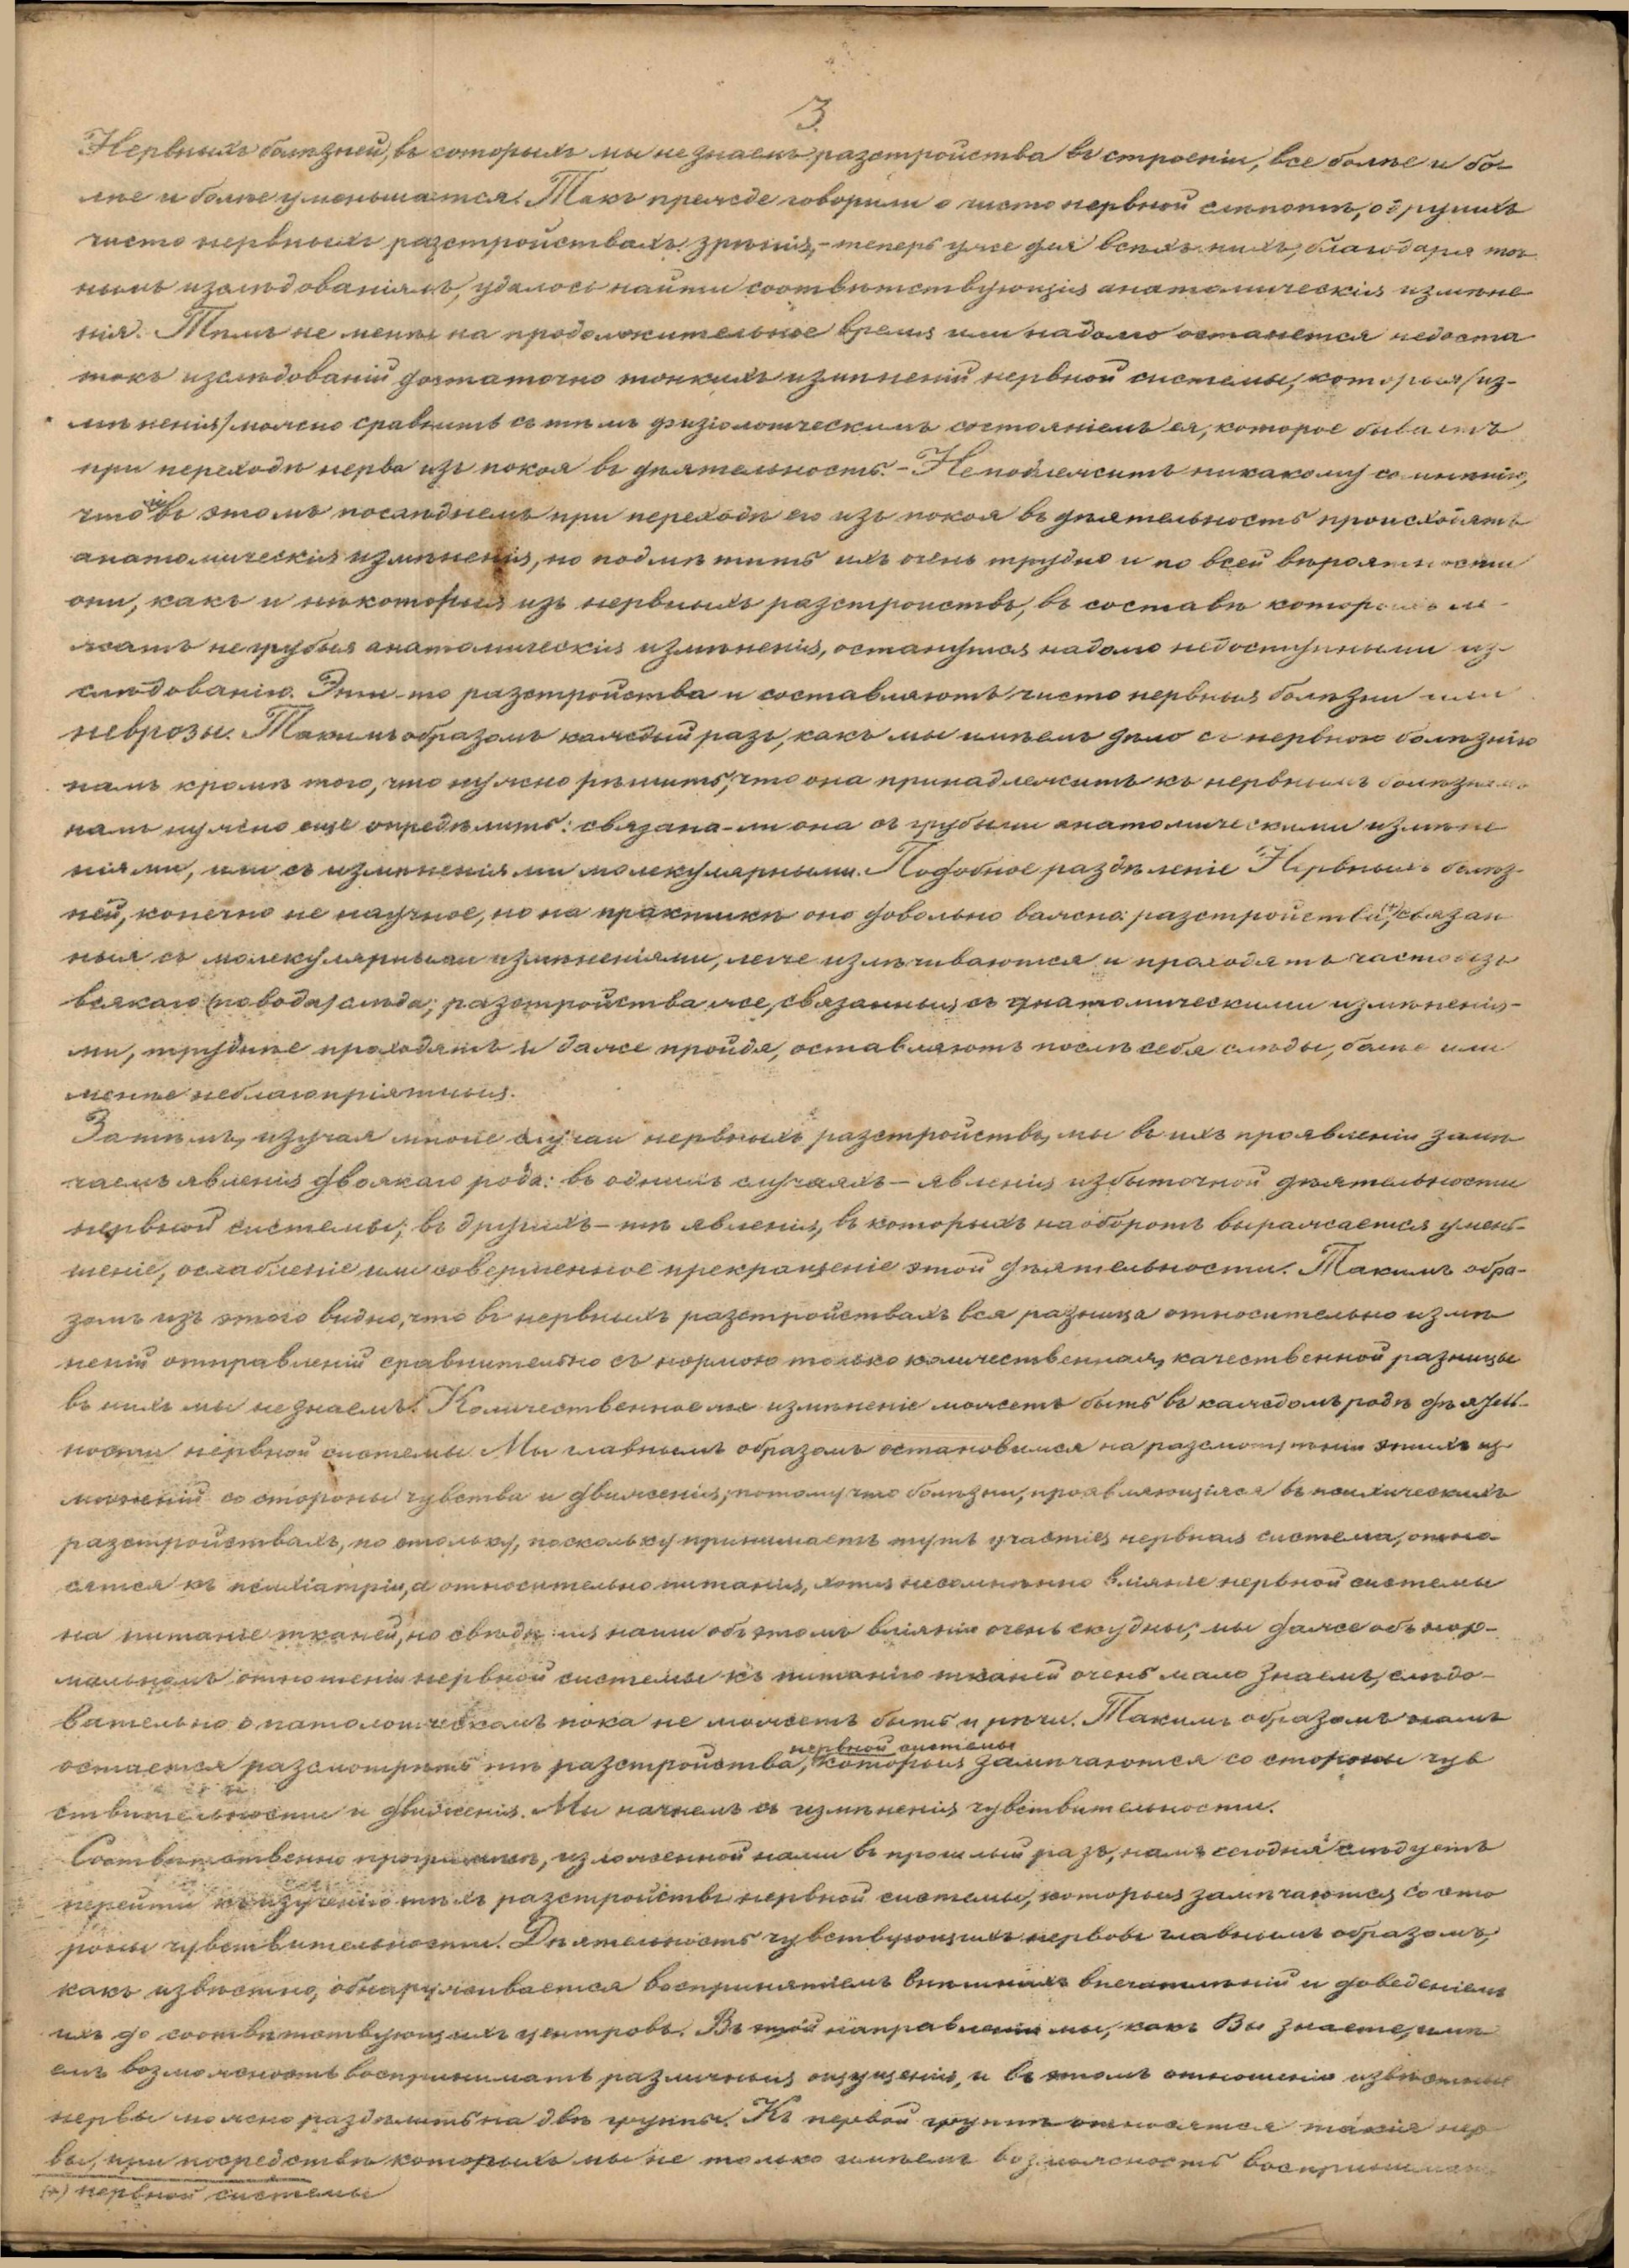 3.
Нервныхъ болѣзней, въ которыхъ мы не знаемъ разстройства въ строеніи, все болѣе и бо-
лѣе и болѣе уменьшается. Такъ прежде говорили о чисто нервной слѣпотѣ, о другихъ
чисто нервныхъ разстройствахъ зрѣнія, – теперь уже для всѣхъ нихъ, благодаря точ
нымъ изслѣдованіямъ, удалось найти соотвѣтствующія анатомическія измѣне
нія. Тѣмъ не менѣе на продолжительное время или надолго останется недоста
токъ изслѣдованій достаточно тонкихъ измѣненій нервной системы, которыя (из-
мѣненія) можно сравнить съ тѣмъ физіологическимъ состояніемъ ея, которое бываетъ
при переходѣ нерва изъ покоя въ дѣятельность. – Неподлежитъ никакому сомнѣнію,
что и въ этомъ послѣднемъ при переходѣ его изъ покоя въ дѣятельность происходятъ
анатомическія измѣненія, но подмѣтить ихъ очень трудно и по всей вѣроятности
они, какъ и нѣкоторыя изъ нервныхъ разстройствъ, въ составѣ которыхъ ле-
жатъ не грубыя анатомическія измѣненія, останутся надолго недоступными из-
слѣдованію. Эти-то разстройства и составляютъ чисто нервныя болѣзни или
неврозы. Такимъ образомъ каждый разъ, какъ мы имѣемъ дѣло съ нервною болѣзнію
намъ кромѣ того, что нужно рѣшить, что она принадлежитъ къ нервнымъ болѣзнямъ
намъ нужно еще опредѣлить: связана-ли она съ грубыми анатомическими измѣне
ніями, или съ измѣненіями молекулярными. Подобное раздѣленіе Нервныхъ болѣз-
ней, конечно не научное, но на практикѣ оно довольно важно: разстройства (+), связан
ныя съ молекулярными измѣненіями, легче излѣчиваются и проходятъ часто безъ
всякаго (повода) слѣда; разстройства же, связанныя съ анатомическими измѣнені-
ми, труднѣе проходятъ и даже пройдя, оставляютъ послѣ себя слѣды, болѣе или
менѣе неблагопріятныя.
Затѣмъ, изучая многіе случаи нервныхъ разстройствъ, мы въ ихъ проявленіи замѣ
чаемъ явленія двоякаго рода: въ однихъ случаяхъ – явленія избыточной дѣятельности
нервной системы; въ другихъ – тѣ явленія, въ которыхъ наоборотъ выражается умень-
шеніе, ослабленіе или совершенное прекращеніе этой дѣятельности. Такимъ обра-
зомъ изъ этого видно, что въ нервныхъ разстройствахъ вся разница относительно измѣ
неній отправленій сравнительно съ нормою только количественная, качественной разницы
въ нихъ мы не знаемъ. Количественное же измѣненіе можетъ быть въ каждомъ родѣ дѣятель-
ности нервной системы. Мы главнымъ образомъ остановимся на разсмотрѣніи этихъ из-
мѣненій со стороны чувства и движенія, потому что болѣзни, проявляющіяся въ психическихъ
разстройствахъ, по стольку, поскольку принимаетъ тутъ участіе нервная система, отно-
сятся къ психіатріи, а относительно питанія, хотя несомнѣнно вліяніе нервной системы
на питаніе тканей, но свѣдѣнія наши объ этомъ вліяніи очень скудны; мы даже объ нор-
мальномъ отношеніи нервной системы къ питанію тканей очень мало знаемъ, слѣдо-
вательно о патологическомъ пока не можетъ быть и рѣчи. Такимъ образомъ намъ
остается разсмотрѣть тѣ разстройства нервной системы, которыя замѣчаются со стороны чув
ствительности и движенія. Мы начнемъ съ измѣненія чувствительности.
Соотвѣтственно программѣ, изложенной нами въ прошлый разъ, намъ сегодня слѣдуетъ
перейти къ изученію тѣхъ разстройствъ нервной системы, которыя замѣчаются со сто
роны чувствительности. Дѣятельность чувствующихъ нервовъ главнымъ образомъ,
какъ извѣстно, обнаруживается воспринятіемъ внѣшнихъ впечатлѣній и доведеніемъ
ихъ до соотвѣтствующихъ центровъ. Въ этой направленіи мы, какъ Вы знаете, имѣ
емъ возможность воспринимать различныя ощущенія, и въ этомъ отношеніи извѣстные
нервы можно раздѣлить на двѣ группы. Къ первой группѣ относятся такіе нер
вы, при посредствѣ которыхъ мы не только имѣемъ возможность воспринимать
(+) нервной системы